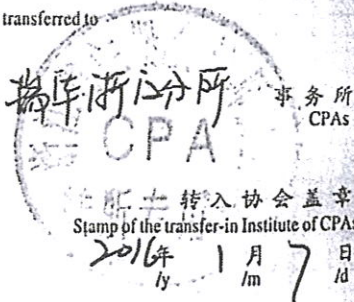 transferred to
瑞华浙江分所 事务所
CPAs
CPA
转入协会盖章
Stamp of the transfer-in Institute of CPAs
2016年 1月 7日
/y /m /d